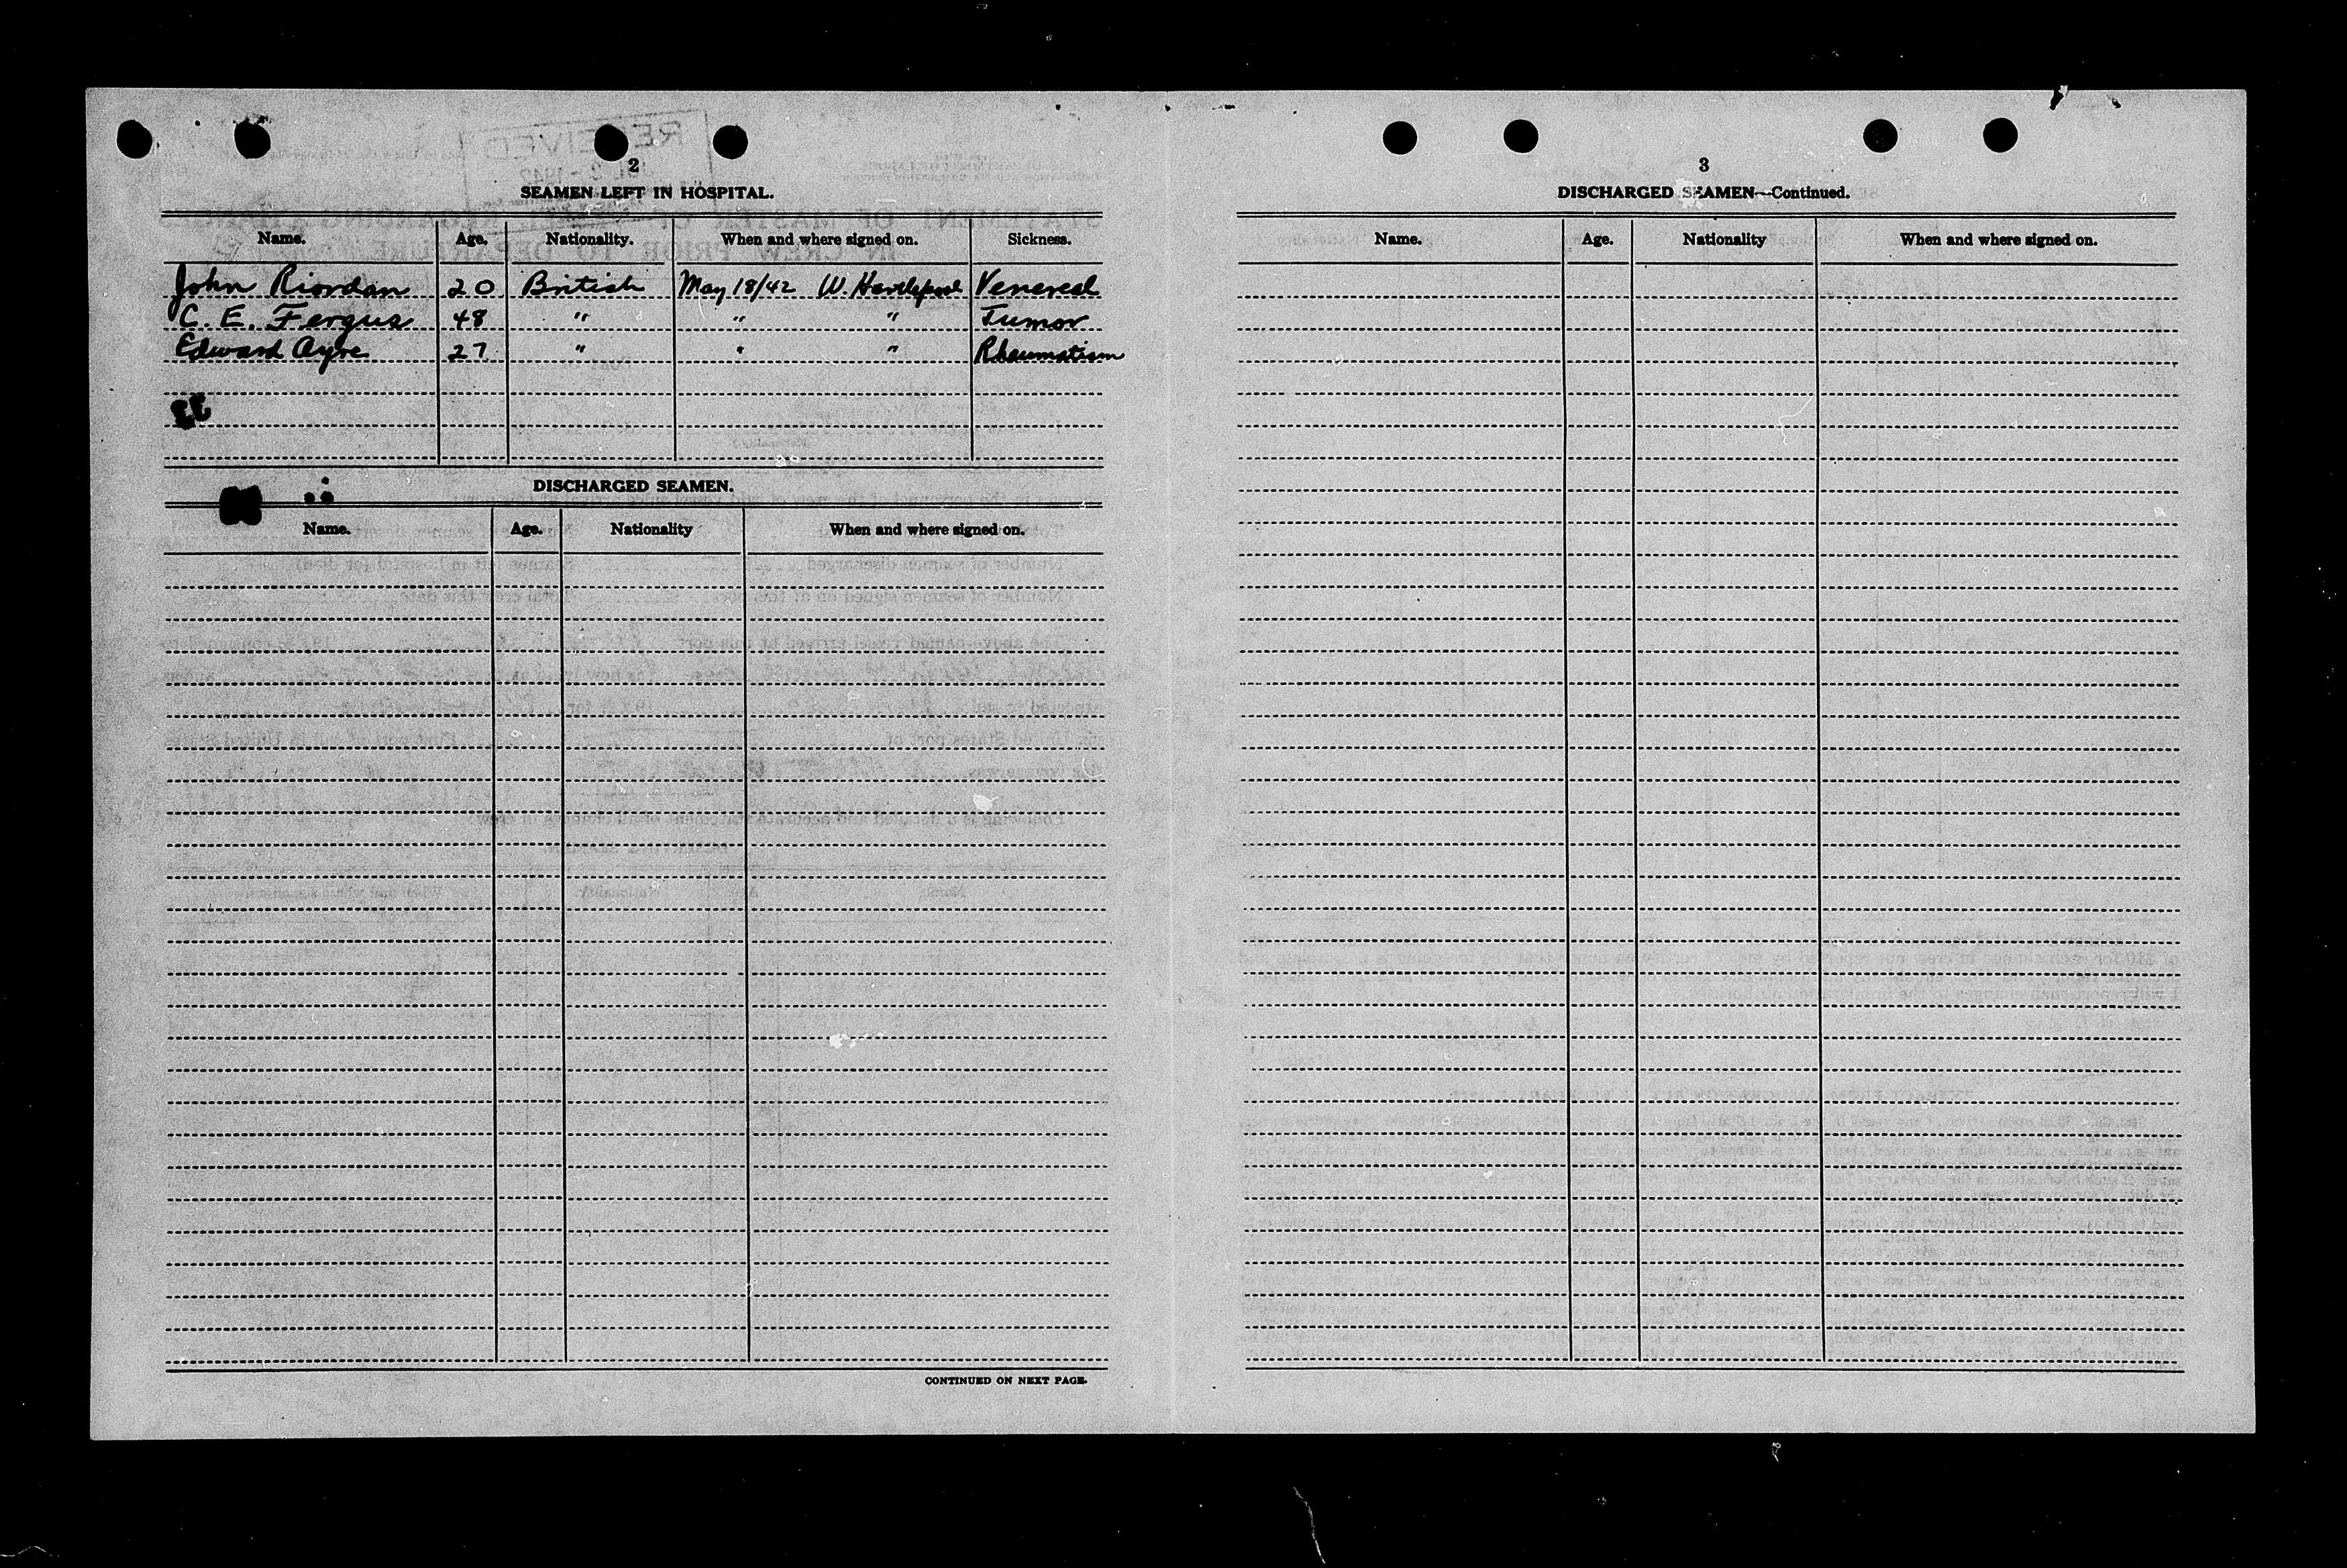 2
SEAMEN LEFT IN HOSPITAL.
Name. Age. Nationality. When and where signed on. Sickness.
John Riordan 20 British May 18/42 W. Hartlepool Venereal
C. E. Fergus 48 " " " Tumor
Edward Ayre 27 " " " Rheumatism
DISCHARGED SEAMEN.
Name. Age. Nationality When and where signed on.
CONTINUED ON NEXT PAGE.
3
DISCHARGED SEAMEN—Continued.
Name. Age. Nationality When and where signed on.